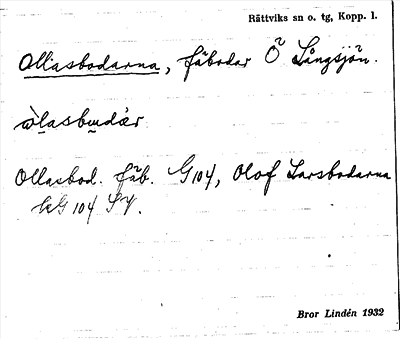 Rättviks sn o. tg, Kopp. l.
Ollasbodarna, fäbodar Ö Långsjön.
Ollasbod. fäb. G104, Olof Larsbodarna
kG 104 SV.
Bror Lindén 1932